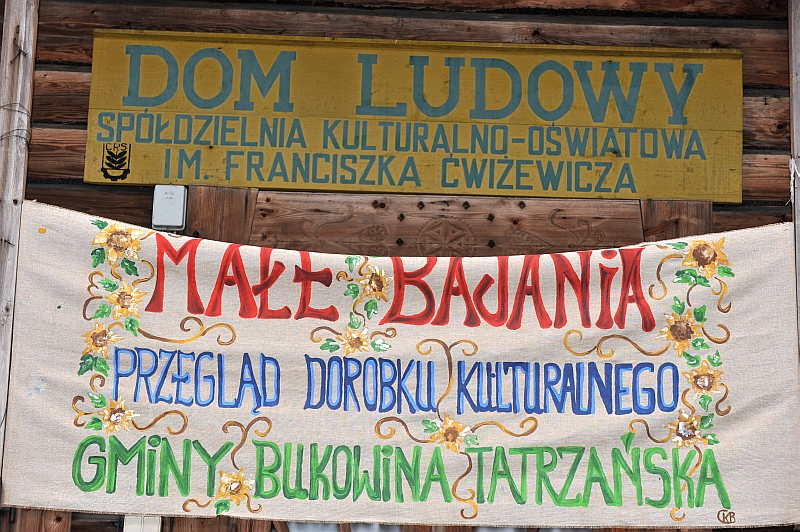 DOM LUDOWY
SPÓŁDZIELNIA KULTURALNO-OŚWIATOWA
CRS
IM. FRANCISZKA ĆWIŻEWICZA
MAŁE BAJANIA
PRZEGLĄD DOROBKU KULTURALNEGO
GMINY BUKOWINA TATRZAŃSKA
CKB